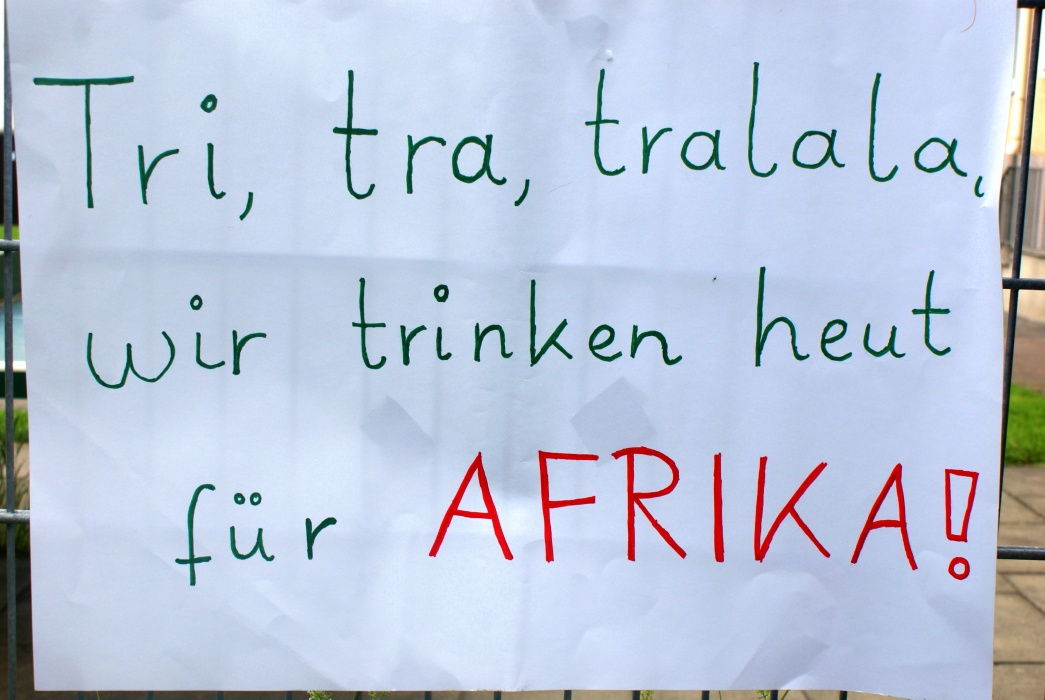 Tri, tra, tralala,
wir trinken heut
für AFRIKA!